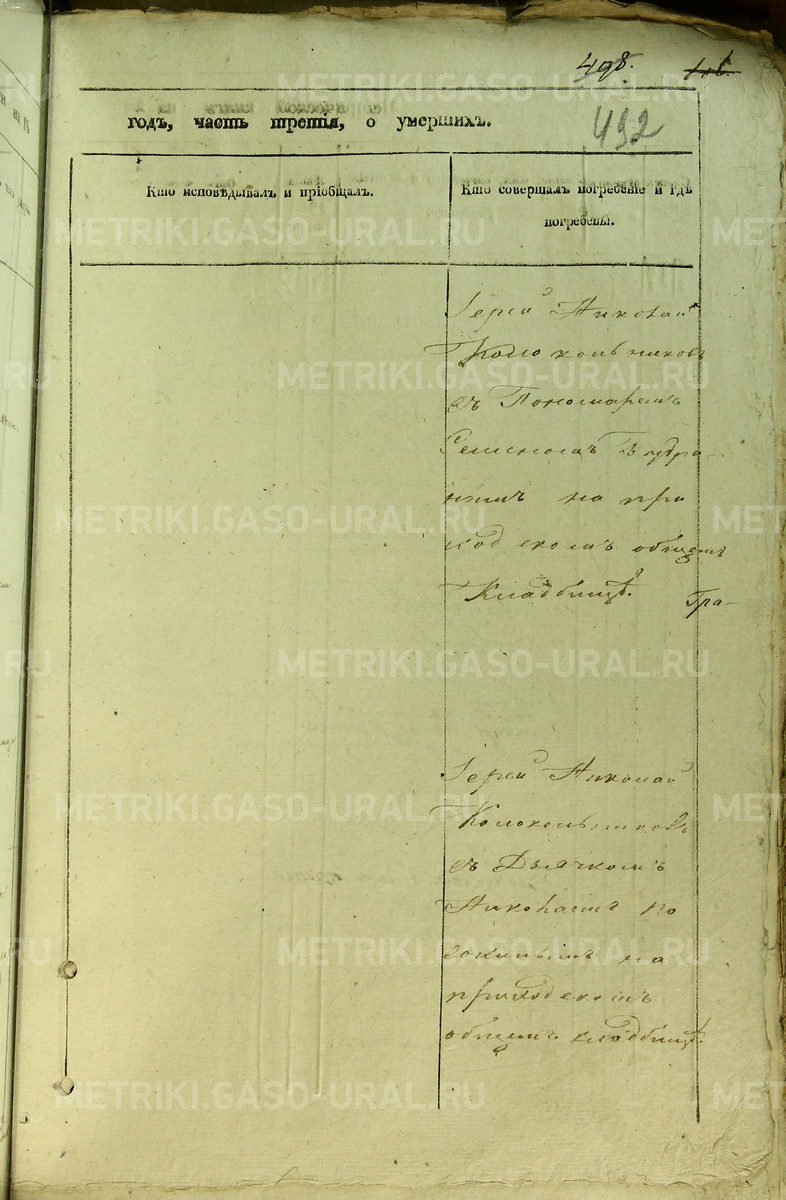 498.
492
годъ, часть третія, о умершихъ.
Кто исповѣдывалъ и пріобщалъ.
Кто совершалъ погребеніе и гдѣ
погребены.
Іерей Николай
Колокольниковъ
съ Пономаремъ
на при
ходскомъ общемъ
Кладбищѣ.
Гра-
Іерей Николай
Колокольниковъ
съ Дьячкомъ
Николаемъ По
на
приходскомъ
общемъ кладбищѣ.
METRIKI.GASO-URAL.RU